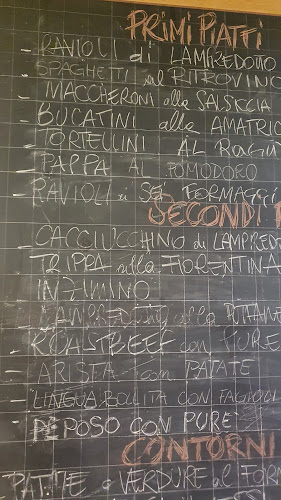 PRIMI PIATTI
- RAVIOLI di LAMPREDOTTO
SPAGHETTI al RITROVINO
- MACCHERONI alla SALSICCIA
- BUCATINI alla AMATRIC
TORTELLINI AL RAGÙ
PAPPA AL POMODORO
- RAVIOLI ai SEI FORMAGGI
SECONDI
- CACCIUCCHINO di LAMPRED
TRIPPA alla FIORENTINA
INZIMINO
- LAMPREDOTTO alla PUTTANE
- ROASTBEEF con PURE
- ARISTA con PATATE
- LINGUA BOLLITA CON FAGIOLI
- PEPOSO CON PURE'
CONTORNI
PATATE e VERDURE al FORN